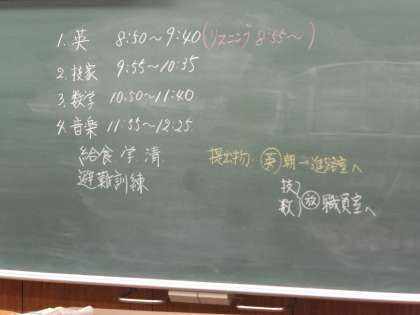 1. 英 8:50〜9:40 (リスニング 8:55〜 )
2. 技家 9:55〜10:35
3. 数学 10:50〜11:40
4. 音楽 11:55〜12:25
給食 学 清
避難訓練
提出物 英 朝→進路室へ
技
数 放 職員室へ